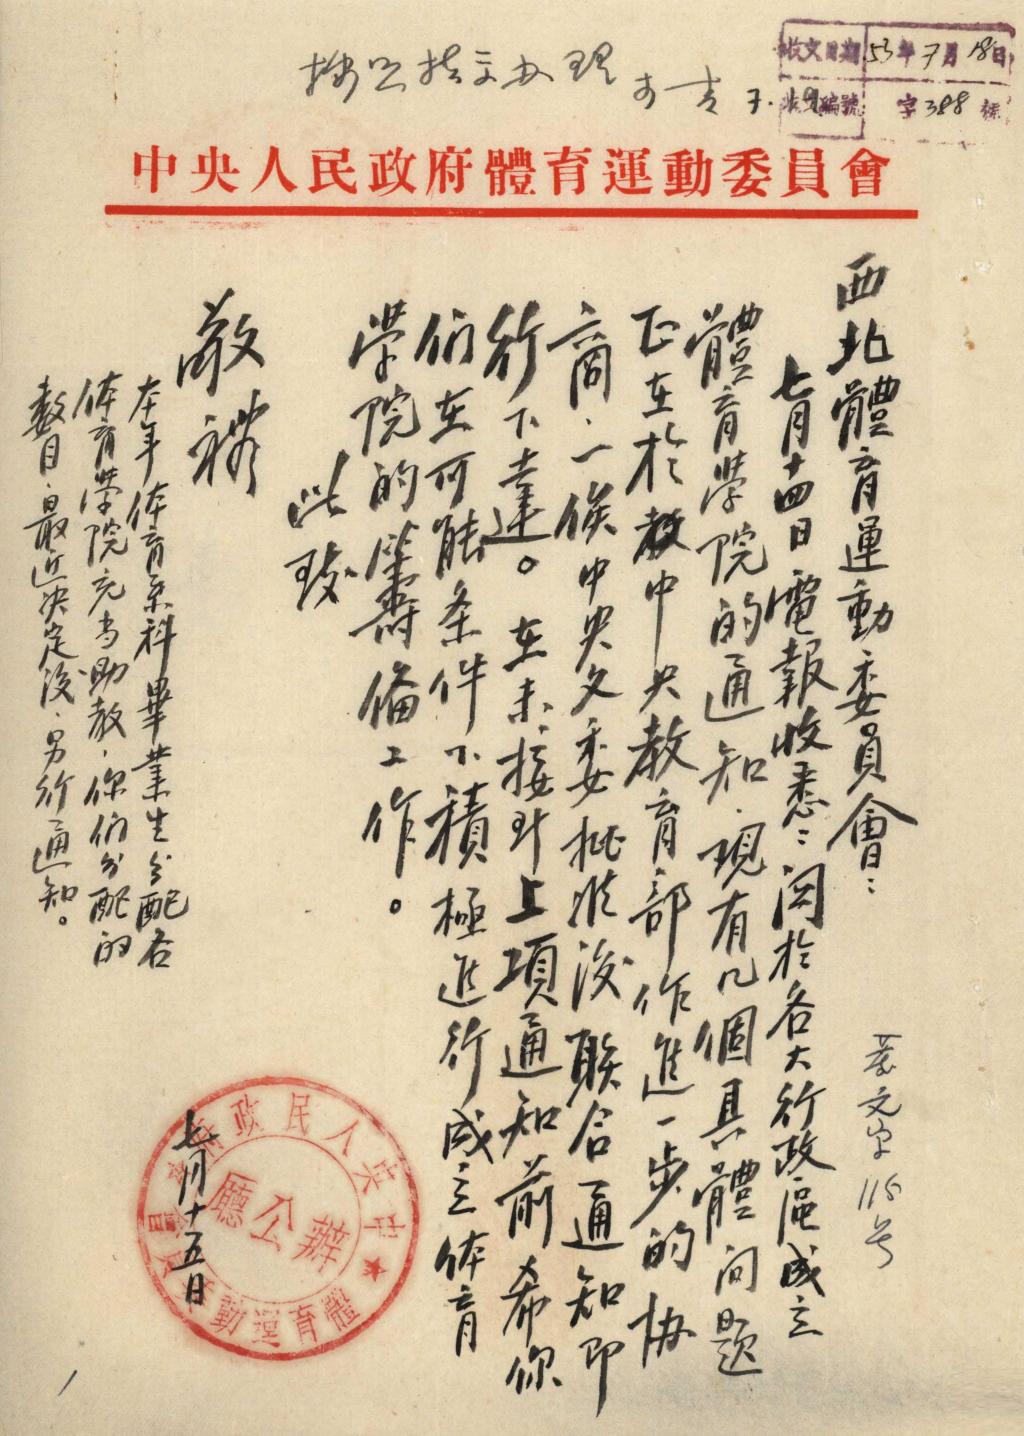 收文日期 53年7月18日
收文編號 字388號
按照指示办理
7.19
中央人民政府體育運動委員會
西北體育運動委員會：
七月十四日電報收悉：関於各大行政區成立
體育學院的通知，現有几個具體问题
正在於教中央教育部作進一步的协
商，一俟中央文委批准後聯合通知即
行下達。在未接到上項通知前希你
们在可能条件下積極進行成立体育
学院的籌備工作。
此致
敬禮
本年体育系科畢業生分配各
体育學院充当助教，你们分配的
数目，最近决定後，另行通知。
七月十五日
中央人民政府體育運動委員會
辦公廳
文字116号